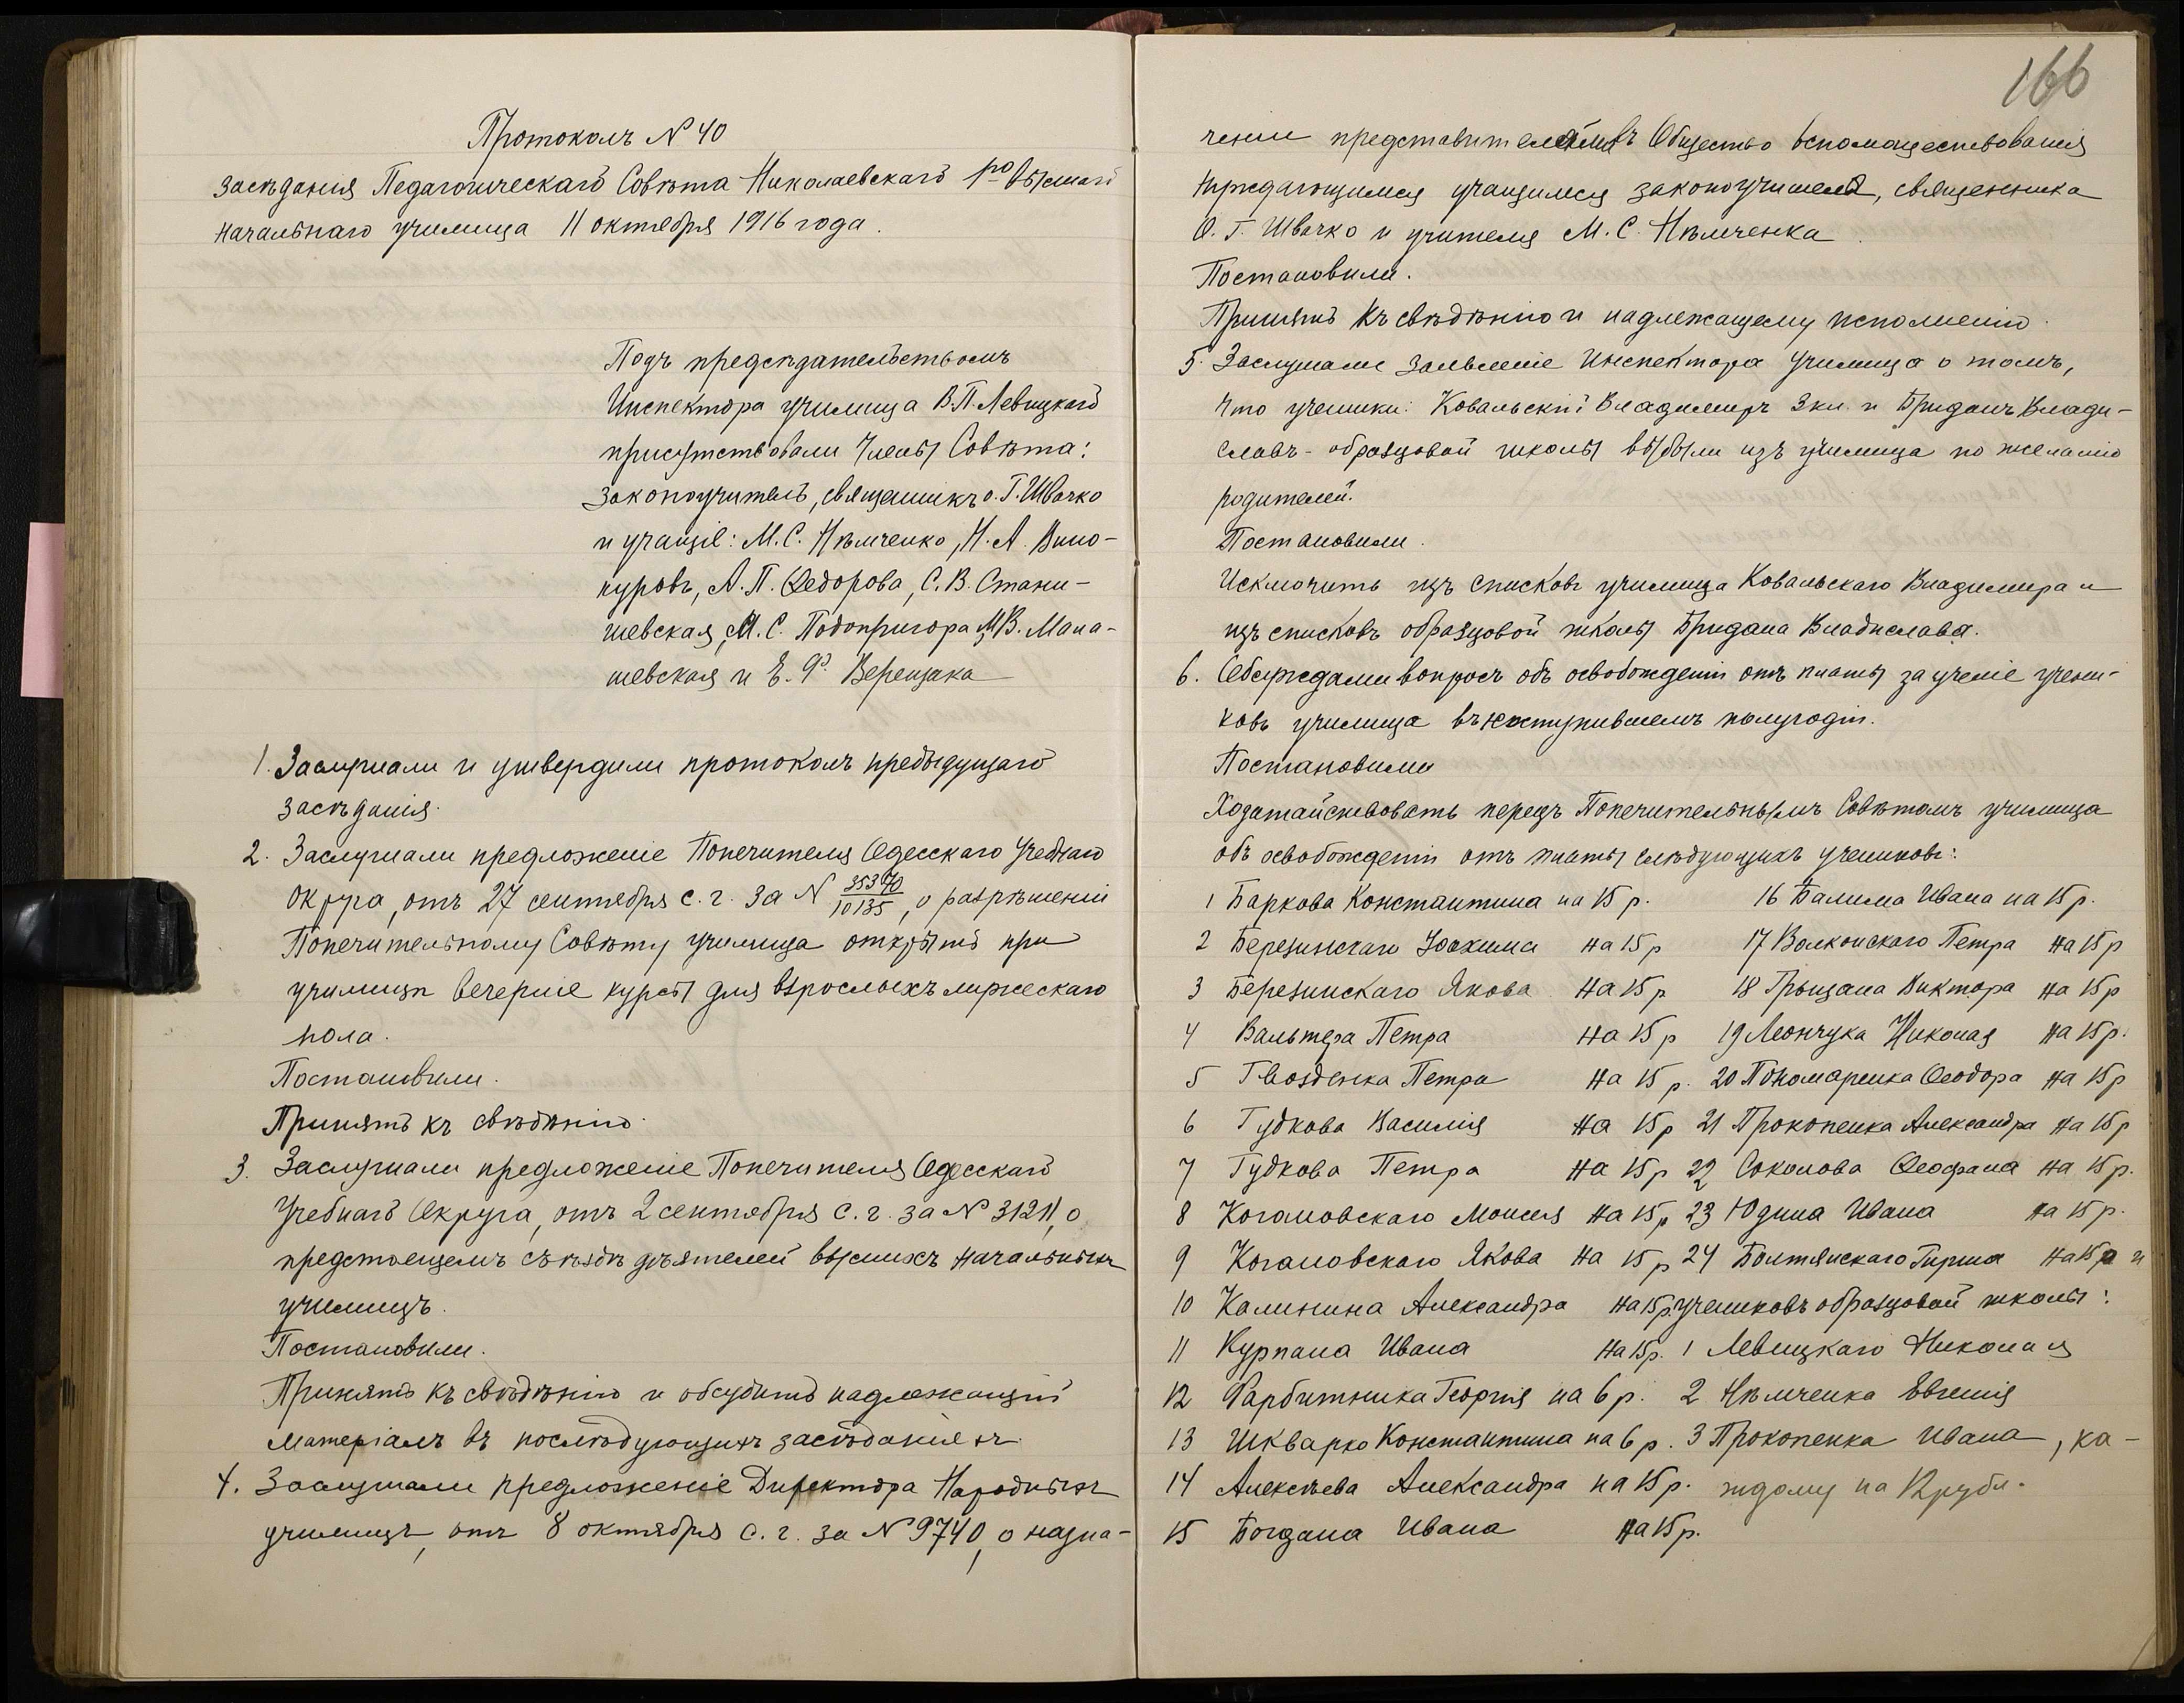 Протоколъ № 40
засѣданія Педагогическаго Совѣта Николаевскаго 1го высшаго
начальнаго училища 11 октября 1916 года.
Подъ предсѣдательствомъ
Инспектора училища В.П. Левицкаго
присутствовали члены Совѣта:
законоучитель, священникъ о. Г. Швачко
и учащіе: М.С. Нѣмченко, Н.А. Вино-
куровъ, А.П. Ѳедорова, С.В. Стани-
шевская, М.С. Подопригора, М.В. Мана-
шевская и Е.Ф. Верещака
1. Заслушали и утвердили протоколъ предыдущаго
засѣданія.
2. Заслушали предложеніе Попечителя Одесскаго Учебнаго
Округа, отъ 27 сентября с.г. за № 35370/10135, о разрѣшеніи
Попечительному Совѣту училища открыть при
училищѣ вечерніе курсы для взрослыхъ мужескаго
пола.
Постановили.
Принять къ свѣдѣнію.
3. Заслушали предложеніе Попечителя Одесскаго
Учебнаго Округа, отъ 2 сентября с.г. за № 31211, о
предстоящемъ съѣздѣ дѣятелей высшихъ начальныхъ
училищъ.
Постановили.
Принять къ свѣдѣнію и обсудить надлежащій
матеріалъ въ послѣдующихъ засѣданіяхъ.
4. Заслушали предложеніе Директора Народныхъ
училищъ, отъ 8 октября с.г. за № 9740, о назна-
166
ченіи представителями въ Общество вспомоществованія
нуждающимся учащимся законоучителя, священника
О. Г. Швачко и учителя М.С. Нѣмченка.
Постановили.
Принять къ свѣдѣнію и надлежащему исполненію.
5. Заслушали заявленіе Инспектора училища о томъ,
что ученики: Ковальскій Владимиръ 3 кл. и Бриданъ Влади-
славъ - образцовой школы выбыли изъ училища по желанію
родителей.
Постановили.
Исключить изъ списковъ училища Ковальскаго Владимира и
изъ списковъ образцовой школы Бридана Владислава.
6. Обсуждали вопросъ объ освобожденіи отъ платы за ученіе учени-
ковъ училища въ наступившемъ полугодіи.
Постановили
Ходатайствовать передъ Попечительнымъ Совѣтомъ училища
объ освобожденіи отъ платы слѣдующихъ учениковъ:
1 Баркова Константина на 15 р. 16 Балима Ивана на 15 р.
2 Березинскаго Іоахима на 15 р 17 Волконскаго Петра на 15 р
3 Березинскаго Якова на 15 р 18 Грыцана Виктора на 15 р
4 Вальтера Петра на 15 р 19 Леончука Николая на 15 р.
5 Гвозденка Петра на 15 р. 20 Пономаренка Ѳеодора на 15 р
6 Гудкова Василія на 15 р 21 Прокопенка Александра на 15 р
7 Гудкова Петра на 15 р 22 Соколова Ѳеофана на 15 р.
8 Когановскаго Моисея на 15 р 23 Юдина Ивана на 15 р.
9 Когановскаго Якова на 15 р 24 Болтянскаго Гирша на 15 р и
10 Калинина Александра на 15 р. учениковъ образцовой школы:
11 Курпана Ивана на 15 р. 1 Левицкаго Николая
12 Фарбитника Георгія на 6 р. 2 Нѣмченка Евгенія
13 Шкварко Константина на 6 р. 3 Прокопенка Ивана, ка-
14 Алексѣева Александра на 15 р. ждому на 12 рубл.
15 Богдана Ивана на 15 р.